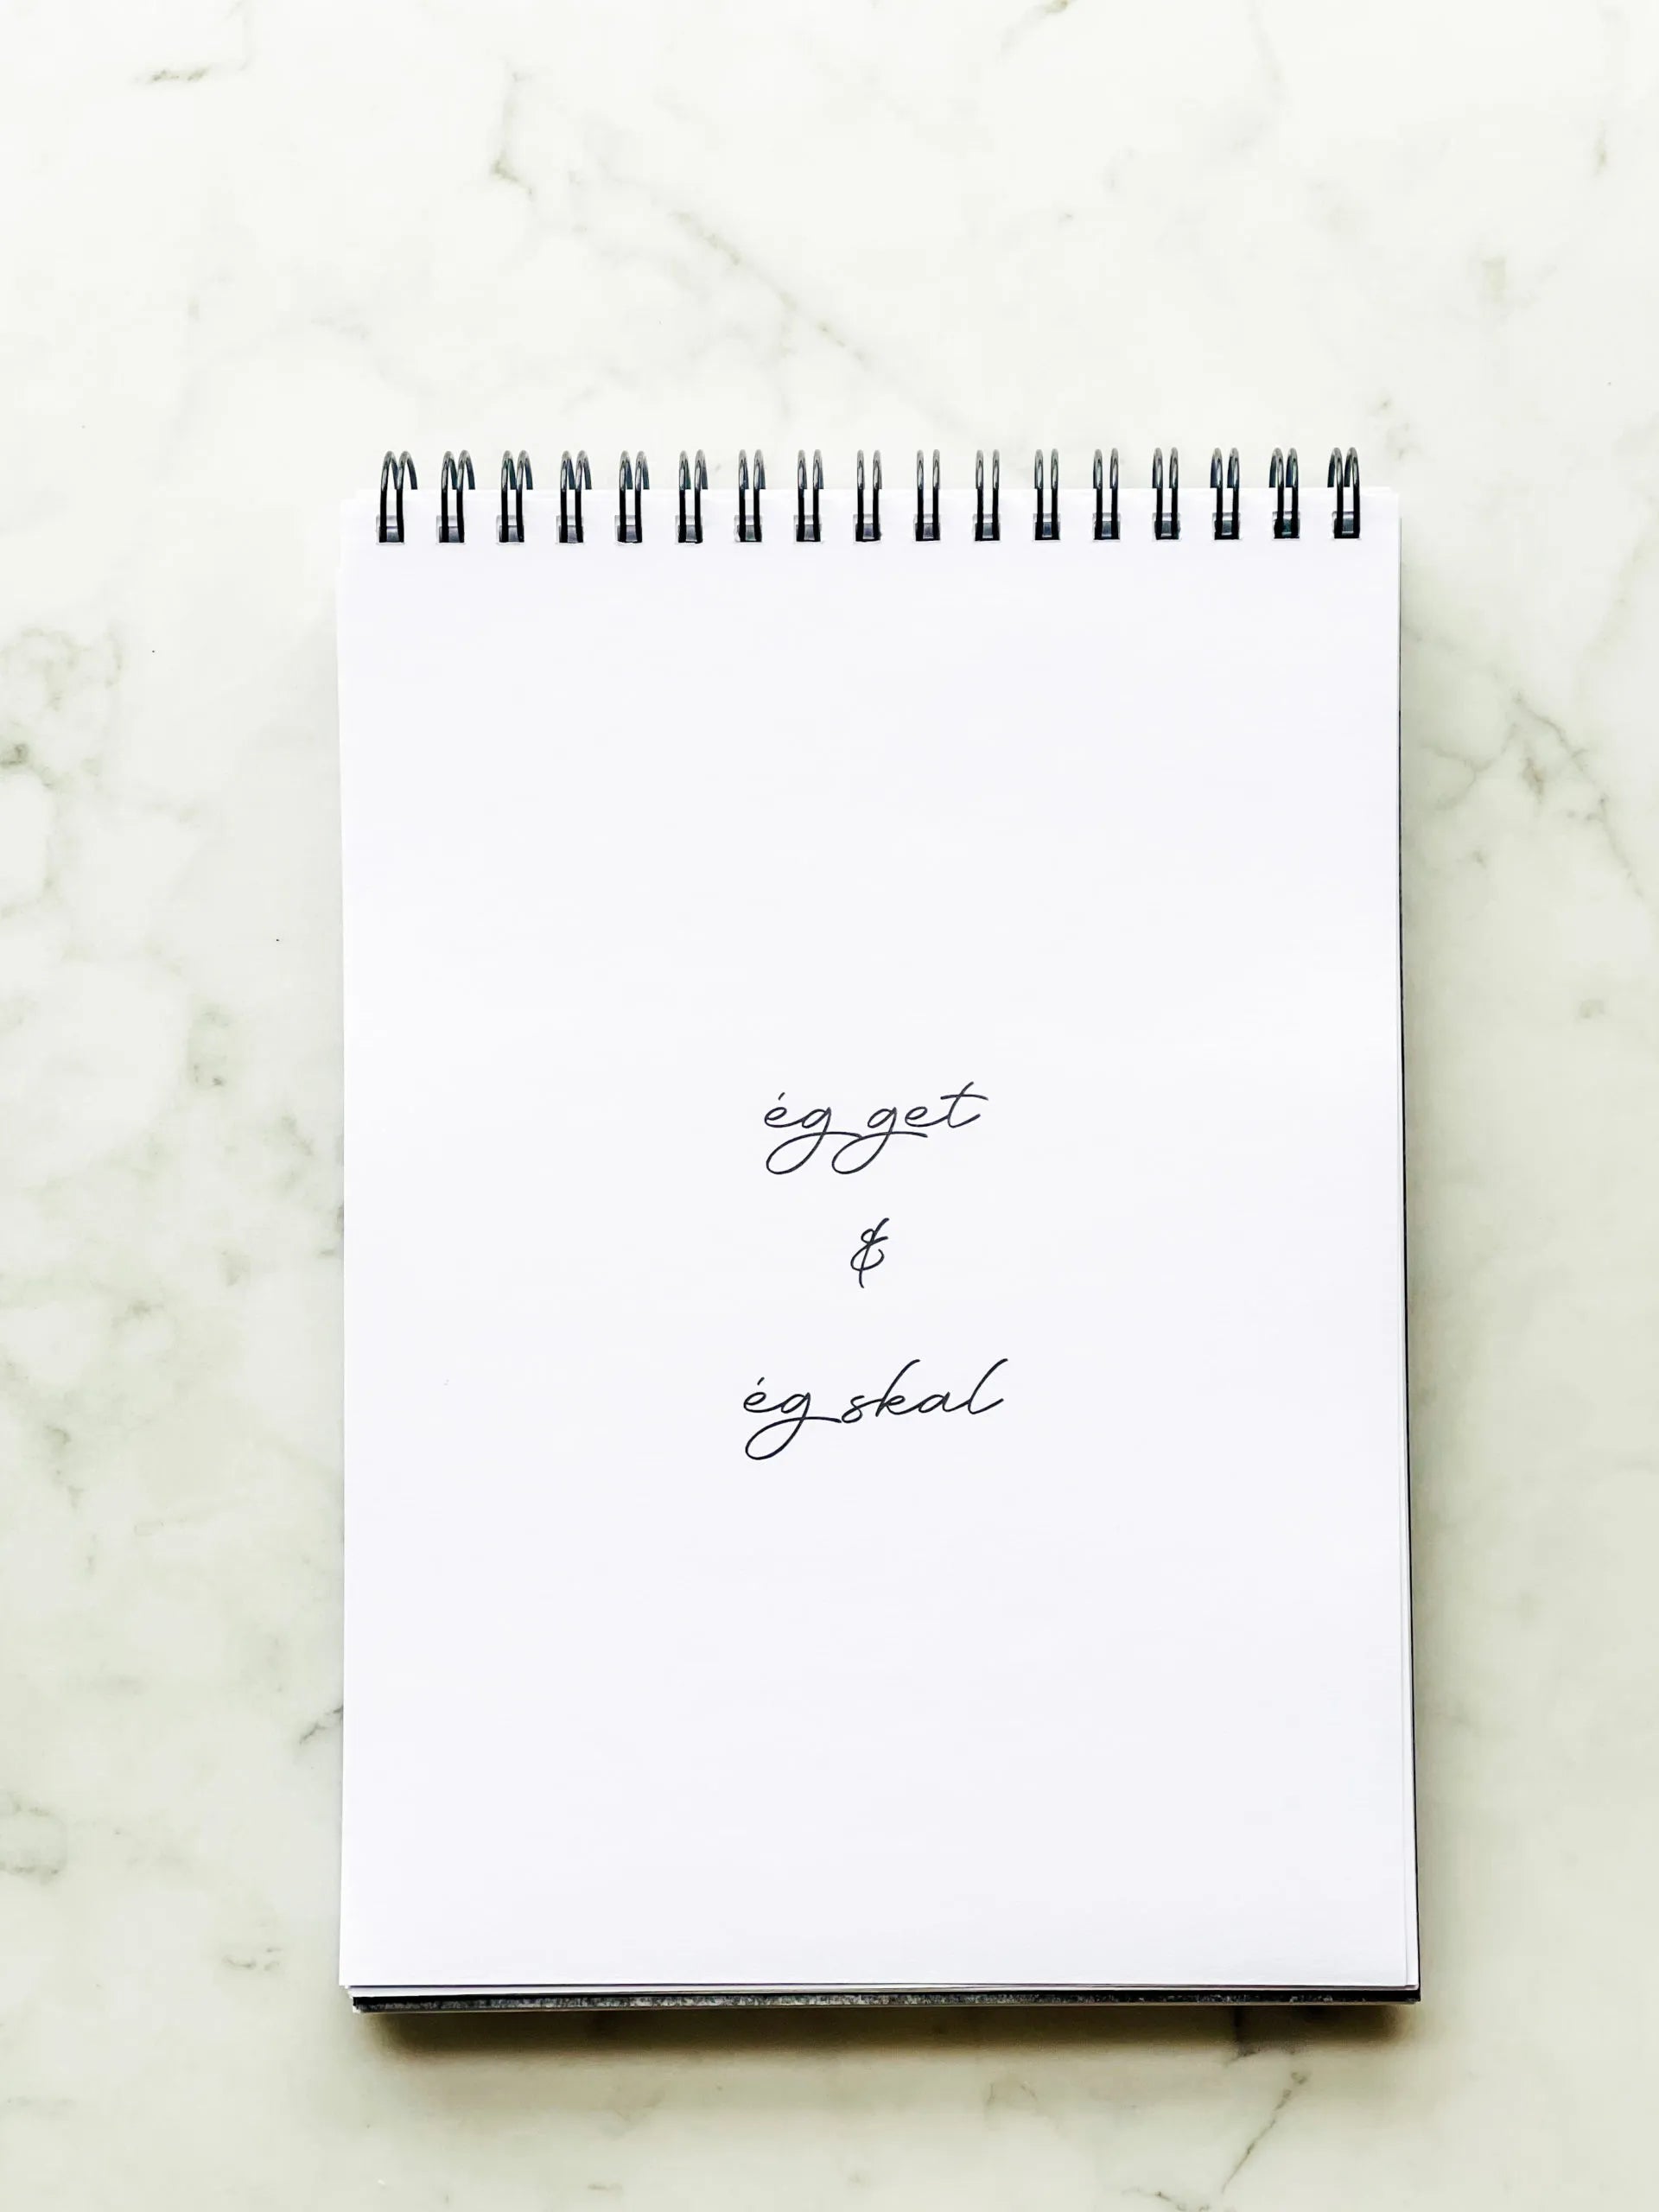 ég get
&
ég skal